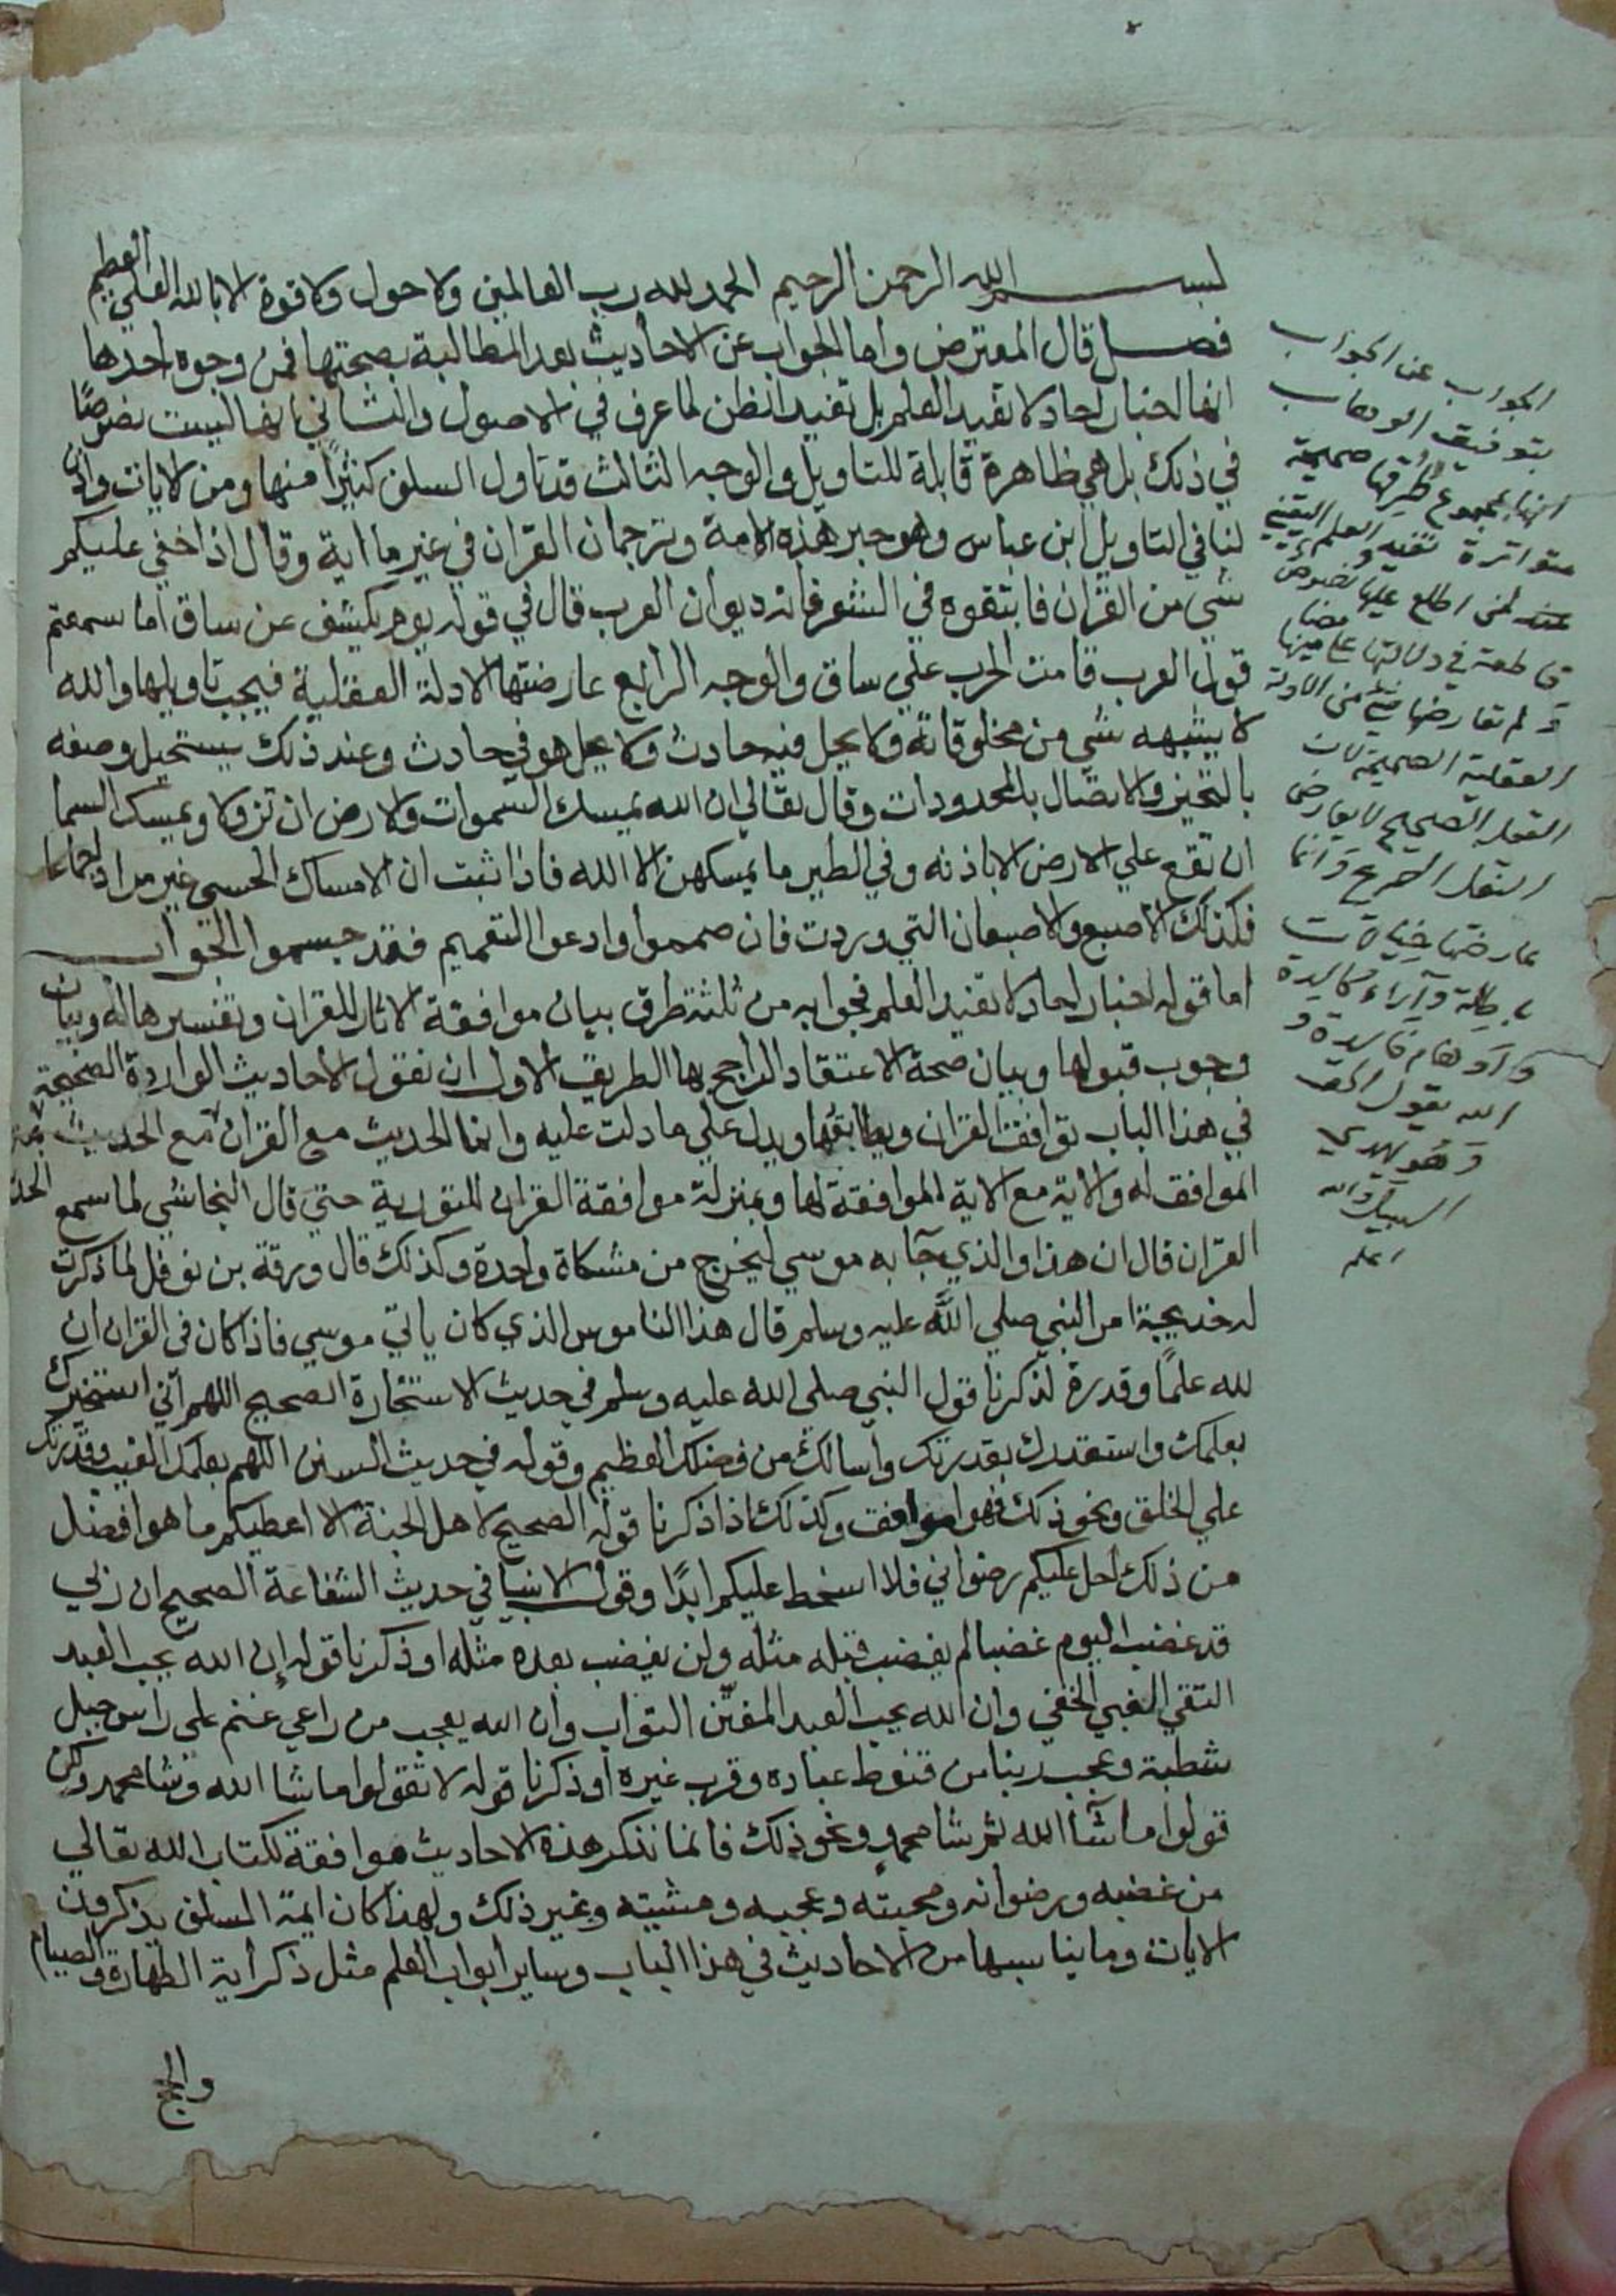 بسم الله الرحمن الرحيم الحمد لله رب العالمين ولا حول ولا قوة الا بالله العلي العظيم
فصل قال المعترض واما الجواب عن الاحاديث بعد المطالبة بصحتها فمن وجوه احدها
انها اخبار احاد لا تفيد العلم بل تفيد الظن لما عرف في الاصول والثاني انها ليست نصوصًا
في ذلك بل هي ظاهرة قابلة للتاويل والوجه الثالث قد تاول السلف كثيرًا منها ومن الايات واذن
لنا في التاويل ابن عباس وهو حبر هذه الامة وترجمان القران في غير ما اية وقال اذا خفي عليكم
شي من القران فابتغوه في الشعر فانه ديوان العرب قال في قوله يوم يكشف عن ساق اما سمعتم
قول العرب قامت الحرب علي ساق والوجه الرابع عارضتها الادلة العقلية فيجب تاويلها والله
لا يشبهه شي من مخلوقاته ولا يحل فيه حادث ولا يحل هو في حادث وعند ذلك يستحيل وصفه
بالتحيز والاتصال بالمحدودات وقال تعالي ان الله يمسك السموات والارض ان تزولا ويمسك السما
ان تقع علي الارض الا باذنه وفي الطير ما يمسكهن الا الله فاذا ثبت ان الامساك الحسي غير مراد اجماعا
فكذلك الاصبع والاصبعان التي وردت فان صمموا وادعوا التعميم فقد جسموا الجواب
اما قوله اخبار احاد لا تفيد العلم فجوابه من ثلثة طرق بيان موافقة الاثار للقران وتفسيرها له وبيان
وجوب قبولها وبيان صحة الاعتقاد الراجح بها الطريق الاول ان نقول الاحاديث الواردة الصحيحة
في هذا الباب توافق القران ويطابقها ويدل علي ما دلت عليه وانما الحديث مع القران مع الحديث
الموافق له والاية مع الاية الموافقة لها وبمنزلة موافقة القران للتورية حتي قال النجاشي لما سمع
القران قال ان هذا والذي جآ به موسي ليخرج من مشكاة واحدة وكذلك قال ورقة بن نوفل لما ذكرت
له خديجة امر النبي صلي الله عليه وسلم قال هذا الناموس الذي كان ياتي موسي فاذا كان في القران ان
لله علمًا وقدرة لذكرنا قول النبي صلى الله عليه وسلم في حديث الاستخارة الصحيح اللهم اني استخيرك
بعلمك واستقدرك بقدرتك واسالك من فضلك العظيم وقوله في حديث السنن اللهم بعلمك الغيب وقدرتك
علي الخلق ونحو ذلك فهو موافق وكذلك اذا ذكرنا قوله الصحيح لاهل الجنة الا اعطيكم ما هو افضل
من ذلك احل عليكم رضواني فلا اسخط عليكم ابدًا وقول الانبيا في حديث الشفاعة الصحيح ان ربي
قد غضب اليوم غضبا لم يغضب قبله مثله ولن يغضب بعده مثله او ذكرنا قوله ان الله يحب العبد
التقي الغني الخفي وان الله يحب العبد المفتن التواب وان الله يعجب من راعي غنم على راس جبل
شظية وعجب ربنا من قنوط عباده وقرب غيره او ذكرنا قوله لا تقولوا ما شا الله وشا محمد ولكن
قولوا ما شآ الله ثم شا محمد ونحو ذلك فانما نذكر هذه الاحاديث موافقة لكتاب الله تعالي
من غضبه ورضوانه ومحبته وعجبه ومشيته وغير ذلك ولهذا كان ايمة السلف يذكرون
الايات وما يناسبها من الاحاديث في هذا الباب وساير ابواب العلم مثل ذكر اية الطهارة والصيام
والحج
الجواب عن الجواب
بتوفيق الوهاب
انها بمجموع طرقها صحيحة
متواترة تفيد العلم اليقيني
لمن اطلع عليها نصوص
قاطعة في دلالتها على معانيها
ولم تعارضها شيء من الادلة
العقلية الصحيحة لان
العقل الصحيح لا يعارض
النقل الصريح وانما
عارضتها خيالات
باطلة وآراء كاسدة
واوهام فاسدة و
الله يقول الحق
وهو يهدي
السبيل والله
اعلم